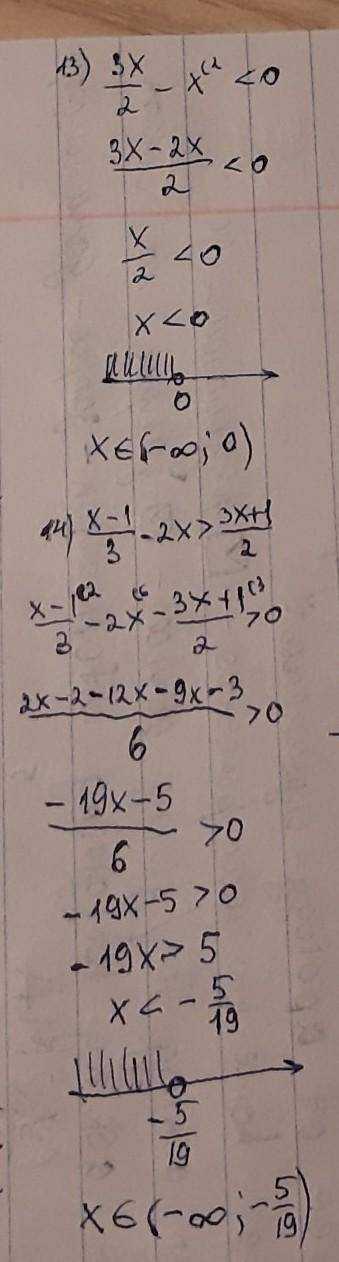 13) 3x/2 - x⁽² < 0
3x - 2x/2 < 0
x/2 < 0
x < 0
0
x ∈ (-∞; 0)
14) x-1/3 - 2x > 3x+1/2
x-1⁽²/3 - 2x⁽⁶ - 3x+1⁽³/2 > 0
2x-2-12x-9x-3/6 > 0
-19x-5/6 > 0
-19x-5 > 0
-19x > 5
x < -5/19
-5/19
x ∈ (-∞; -5/19)